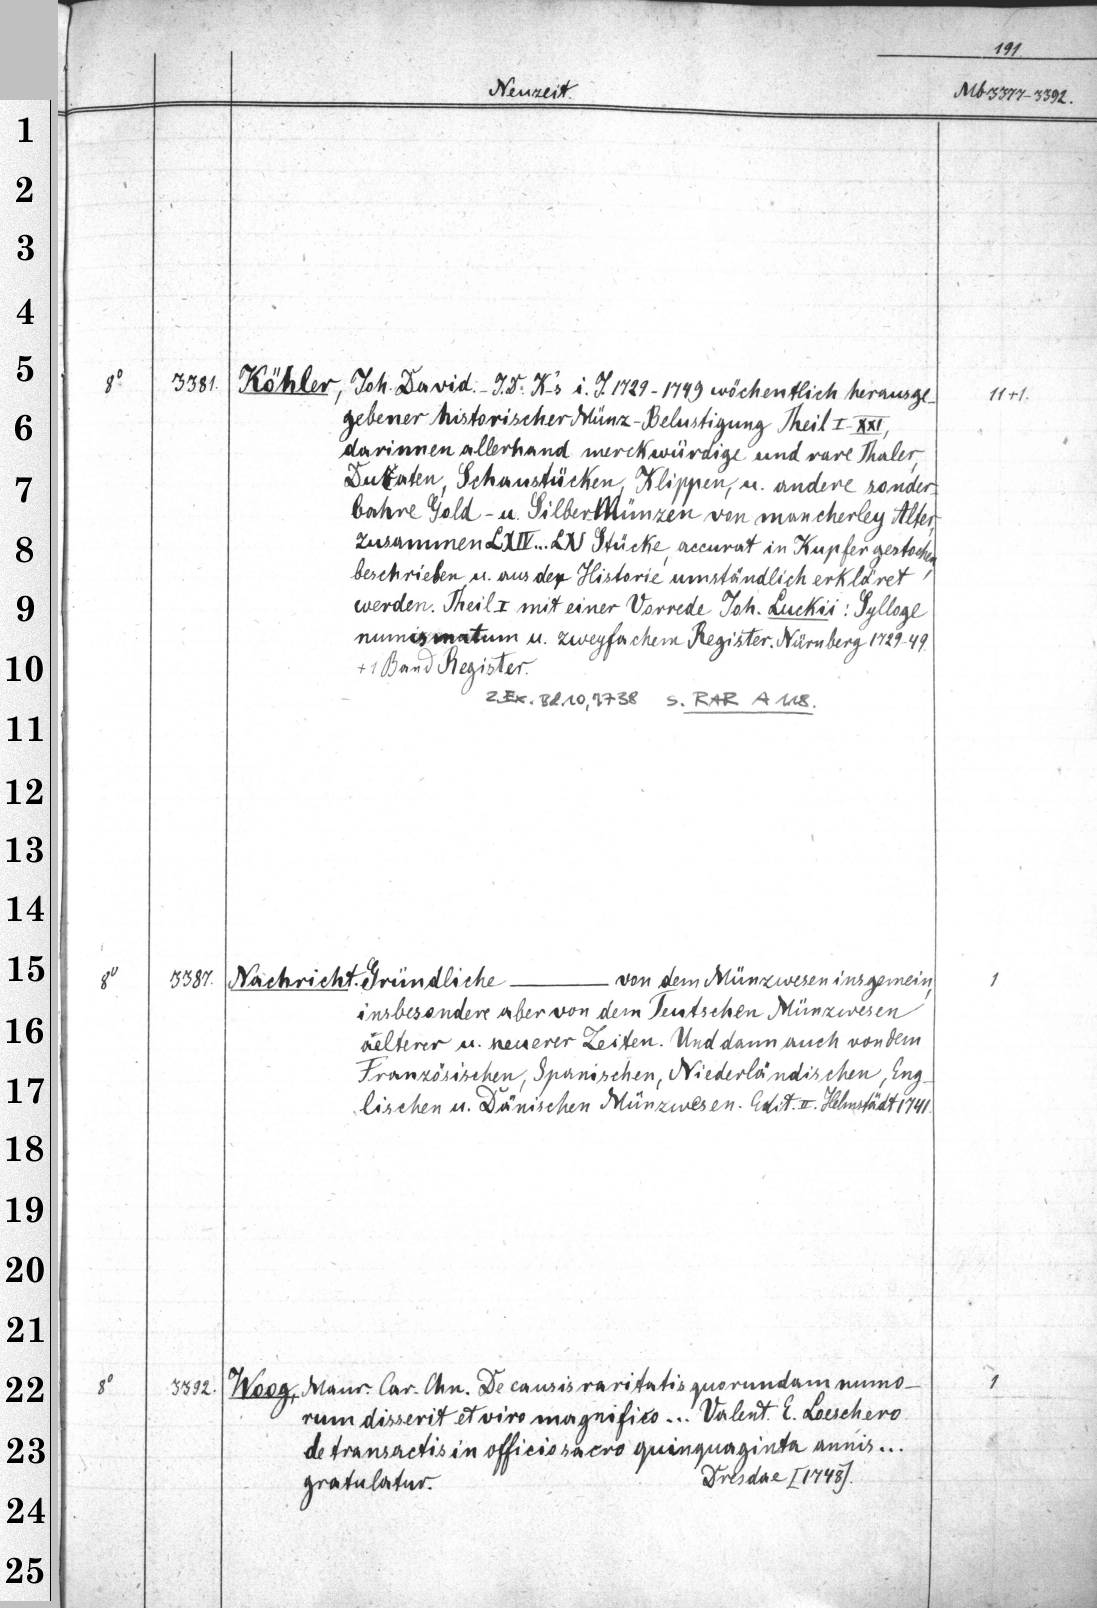 191
Neuzeit.
Mb 3377-3392.
1
2
3
4
5
8° 3381. Köhler, Joh. David. - J. D. K-s i. J. 1729-1749 wöchentlich herausge- 11+1.
6
gebener historischer Münz-Belustigung Theil I-XXI,
darinnen allerhand merckwürdige und rare Thaler,
7
Dukaten, Schaustücken, Klippen, u. andere sonder-
bahre Gold- u. Silber Münzen von mancherley Alter,
8
zusammen LXIV... LXV Stücke, accurat in Kupfer gestochen,
beschrieben u. aus der Historie umständlich erkläret
9
werden. Theil I mit einer Vorrede Joh. Luckii: Sylloge
numismatum u. zweyfachem Register. Nürnberg 1729-49.
10
+1 Band Register.
2. Ex. Bd. 10, 1738 s. RAR A 118.
11
12
13
14
15
8° 3387. Nachricht. Gründliche ——— von dem Münzwesen insgemein, 1
insbesondere aber von dem Teutschen Münzwesen
16
aelterer u. neuerer Zeiten. Und dann auch von dem
Französischen, Spanischen, Niederländischen, Eng-
17
lischen u. Dänischen Münzwesen. Edit. II. Helmstädt 1741.
18
19
20
21
22
8° 3392. Woog, Maur. Car. Chn. De causis raritatis quorundam numo- 1
rum disserit et viro magnifico ... Valent. E. Loeschero
23
de transactis in officio sacro quinquaginta annis ...
gratulatur. Dresdae [1748].
24
25